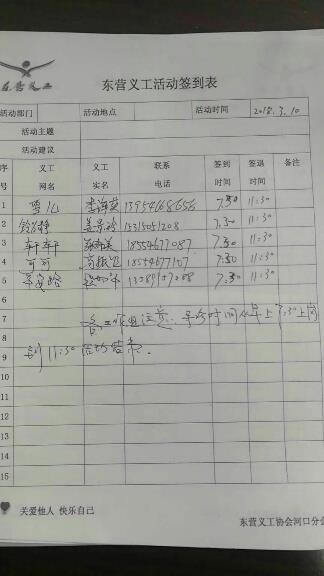 东营义工
东营义工活动签到表
活动部门 活动地点 活动时间 2018.3.10
活动主题
活动建议
序号 义工网名 义工实名 联系电话 签到时间 签退时间 备注
1 雪儿 李海英 13954668656 7:30 11:30
2 13315051208 7:30 11:30
3 轩轩 18554677087 7:30 11:30
4 可可 18554677107 7:30 11:30
5 7:30 11:30
6
7 各工作组注意: 时间从早上7:30上岗
8
9 到11:30 结束.
10
11
12
13
14
15
关爱他人 快乐自己
东营义工协会河口分会